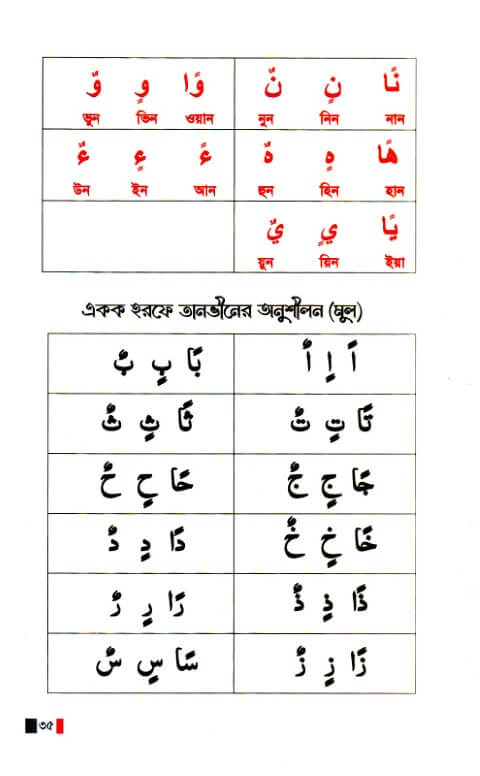 نًا نٍ نٌ
নান নিন নুন
وًا وٍ وٌ
ওয়ান ভিন ভুন
هًا هٍ هٌ
হান হিন হুন
ءً ءٍ ءٌ
আন ইন উন
يًا يٍ يٌ
ইয়া য়িন য়ুন
একক হরফে তানভীনের অনুশীলন (মুল)
اً اٍ اٌ
بًا بٍ بٌ
تًا تٍ تٌ
ثًا ثٍ ثٌ
جًا جٍ جٌ
حًا حٍ حٌ
خًا خٍ خٌ
دًا دٍ دٌ
ذًا ذٍ ذٌ
رًا رٍ رٌ
زًا زٍ زٌ
سًا سٍ سٌ
৩৫